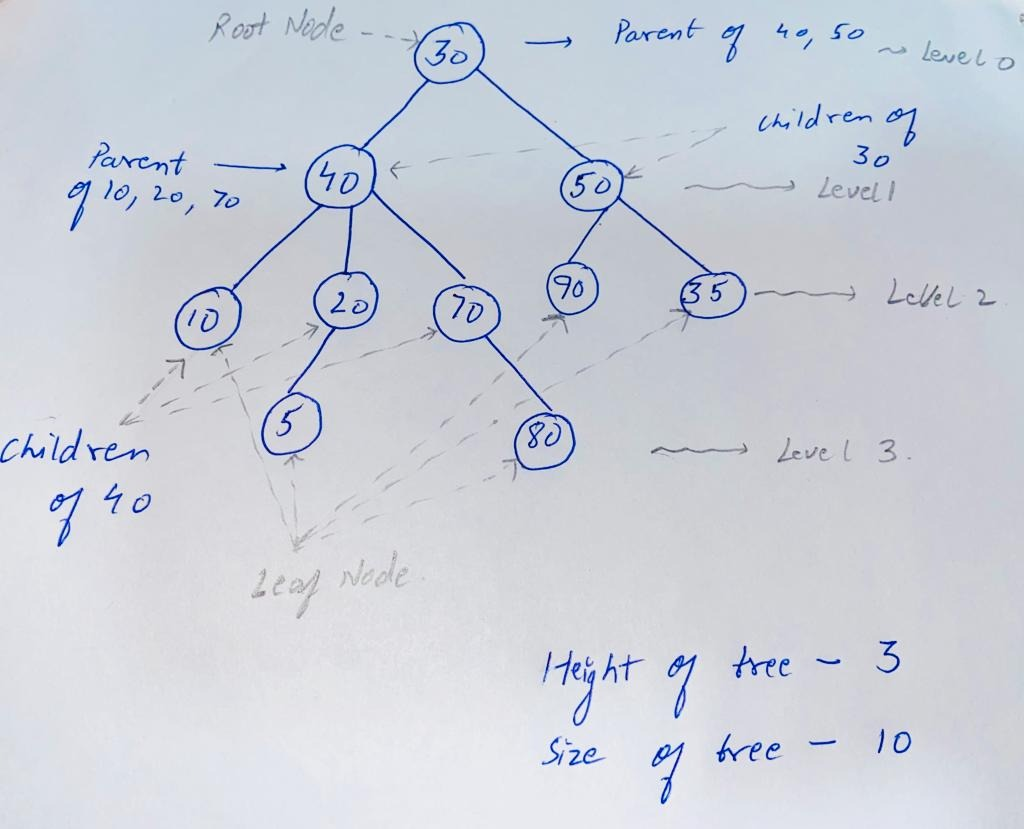 Root Node
30
Parent of 40, 50
Level 0
Children of
30
Parent
of 10, 20, 70
40
50
Level 1
10
20
70
90
35
Level 2
5
80
Level 3.
Children
of 40
Leaf Node.
Height of tree - 3
Size of tree - 10